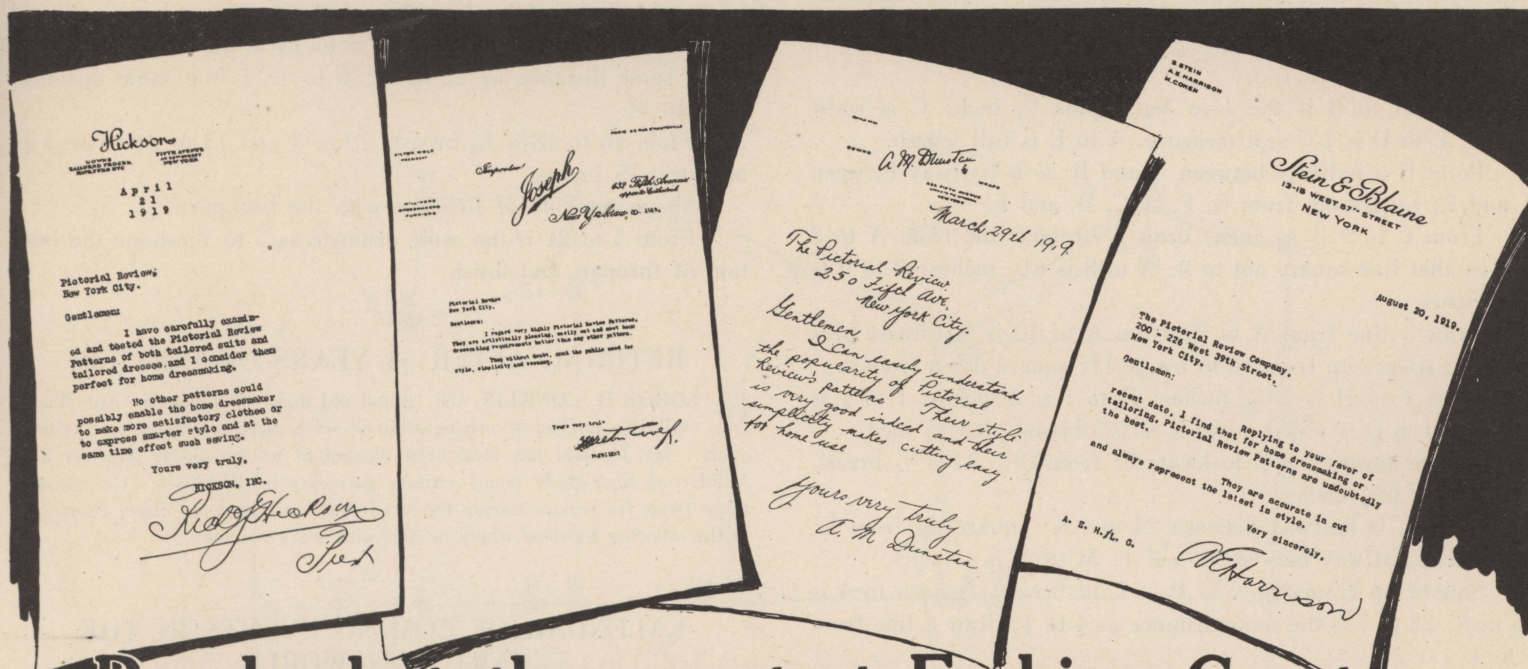 Hickson
GOWNS
TAILORED FROCKS
FIFTH AVENUE
NEW YORK
April
21
1919
Pictorial Review,
New York City.
Gentlemen:
I have carefully examin-
ed and tested the Pictorial Review
Patterns of both tailored suits and
tailored dresses and I consider them
perfect for home dressmaking.
No other patterns could
possibly enable the home dressmaker
to make more satisfactory clothes or
to express smarter style and at the
same time effect such saving.
Yours very truly,
HICKSON, INC.
Pres
MILTON WOLF
PRESIDENT
MILLINERS
DRESSMAKERS
FURRIERS
Importer
Joseph
632 Fifth Avenue
New York, 1919.
Pictorial Review
New York City.
Gentlemen:
I regard very highly Pictorial Review Patterns.
They are artistically pleasing, easily cut and meet home
dressmaking requirements better than any other pattern.
They without doubt, meet the public need for
style, simplicity and economy.
Yours very truly
PRESIDENT
GOWNS
A. M. Dunstan
WRAPS
FIFTH AVENUE
NEW YORK
March 29th 1919.
The Pictorial Review.
250 Fifth Ave.
New York City.
Gentlemen,
I can easily understand
the popularity of Pictorial
Review's patterns. Their style
is very good indeed and their
simplicity makes cutting easy
for home use
Yours very truly
A. M Dunstan
S. STEIN
A. E. HARRISON
M. COHEN
Stein & Blaine
13-15 WEST 57TH STREET
NEW YORK
August 30, 1919.
The Pictorial Review Company,
200 - 226 West 39th Street,
New York City.
Gentlemen:
Replying to your favor of
recent date, I find that for home dressmaking or
tailoring, Pictorial Review Patterns are undoubtedly
the best.
They are accurate in cut
and always represent the latest in style.
Very sincerely,
A. E. H./L. G.
A E Harrison